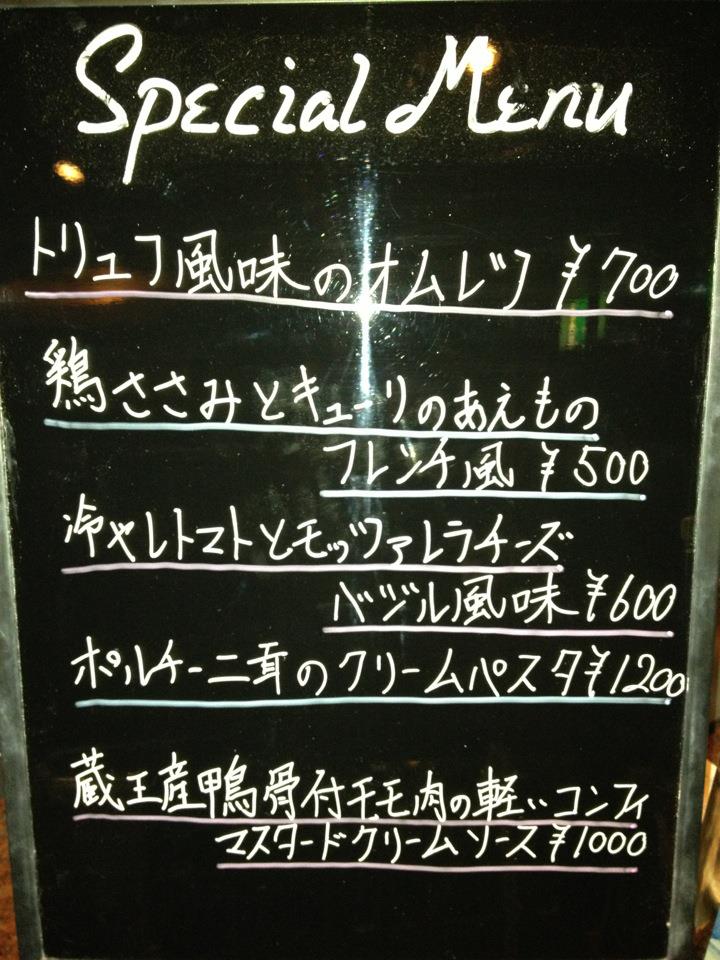 Special Menu
トリュフ風味のオムレツ ¥700
鶏ささみとキューリのあえもの
フレンチ風 ¥500
冷やしトマトとモッツァレラチーズ
バジル風味 ¥600
ポルチーニ茸のクリームパスタ ¥1200
蔵王産鴨骨付モモ肉の軽いコンフィ
マスタードクリームソース ¥1000